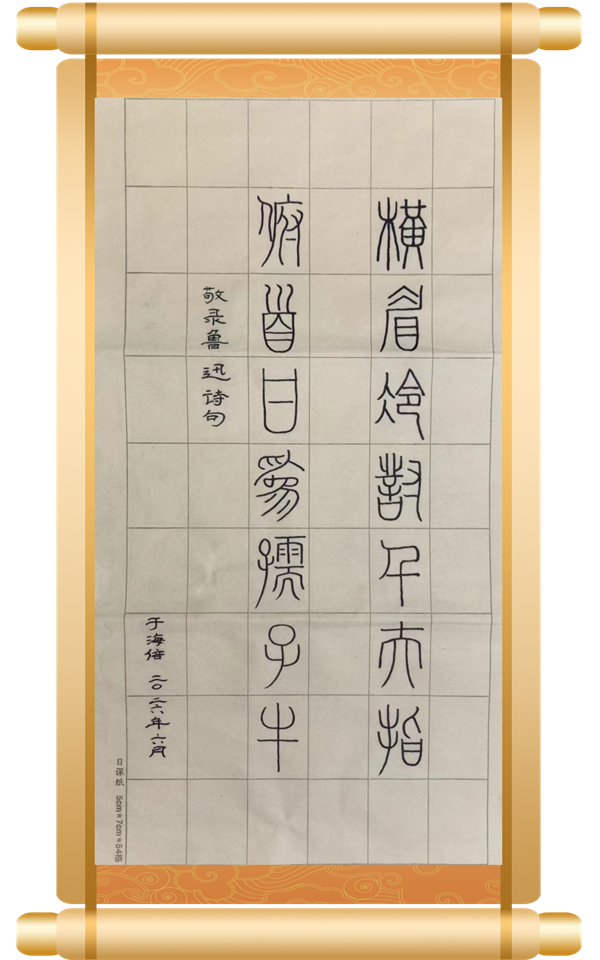 橫眉冷對千夫指
俯首甘為孺子牛
敬录魯迅詩句
于海倍 二〇二六年六月
日课纸 5cm*7cm*54格